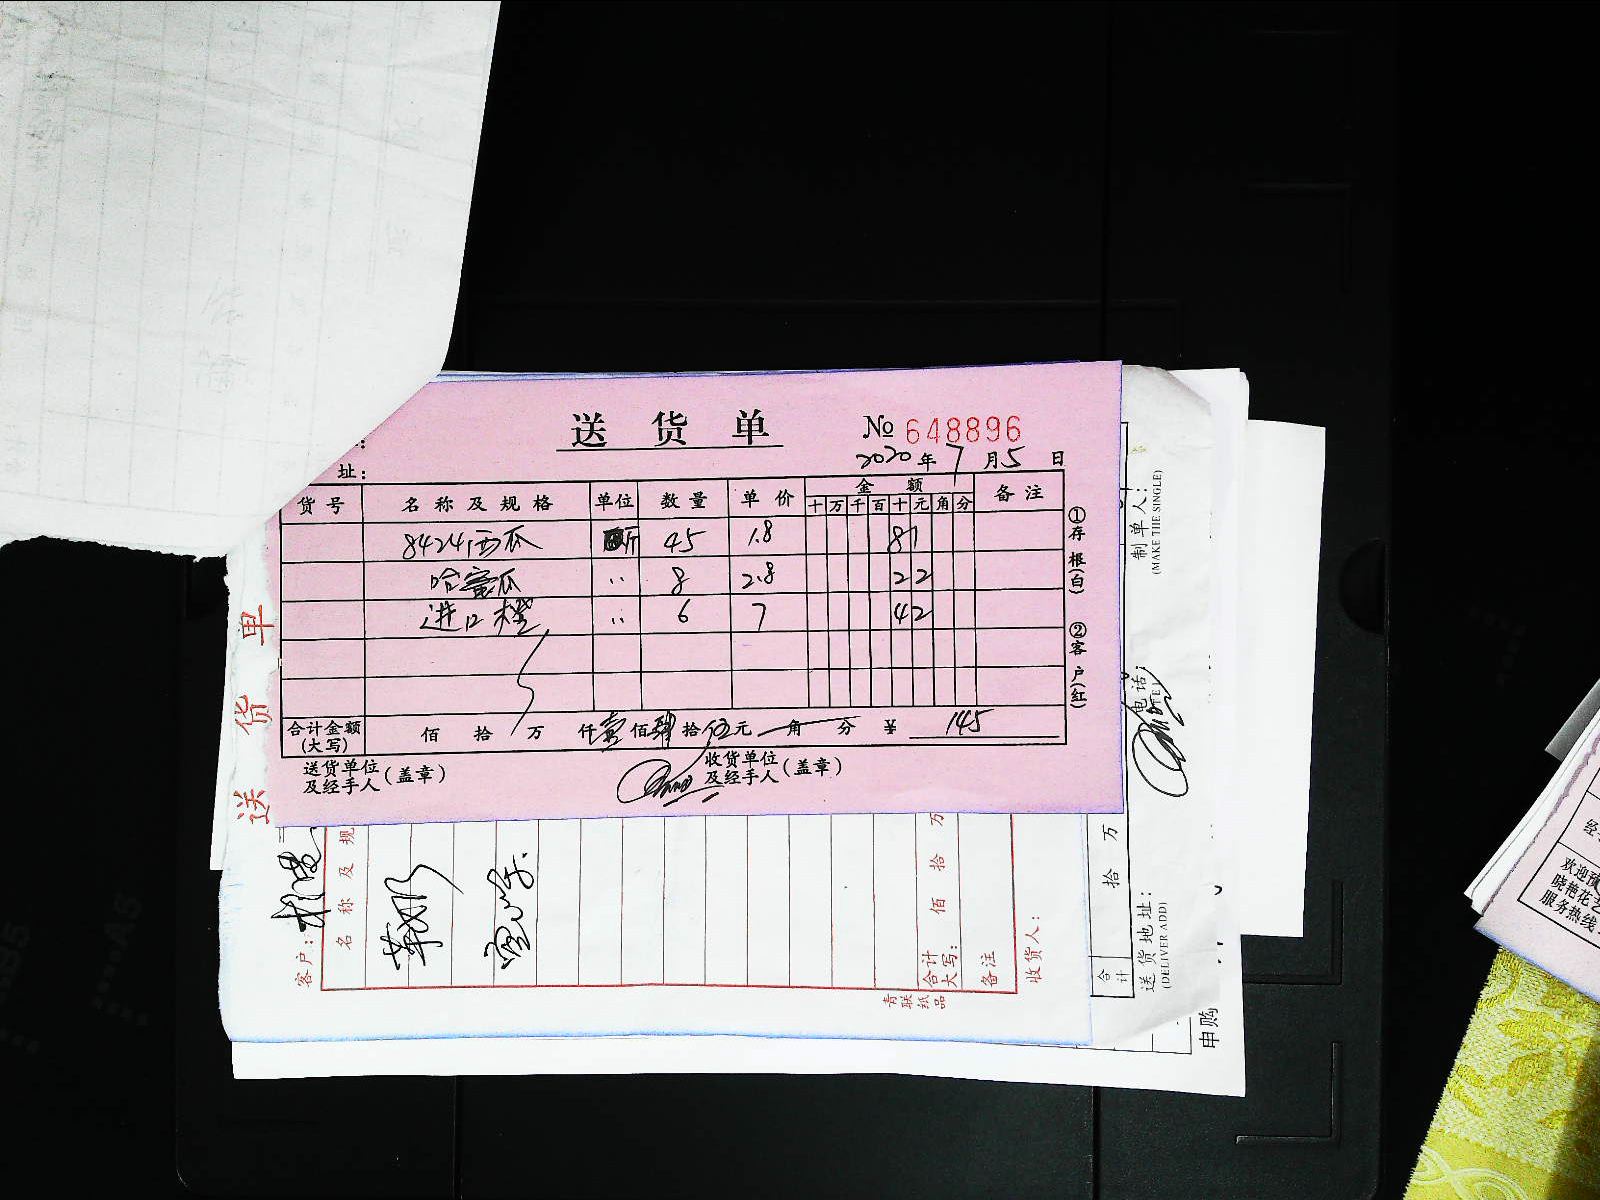 送货单 № 648896
2020年7月5日
址：
货号 名称及规格 单位 数量 单价 金额 备注
十 万 千 百 十 元 角 分
8424西瓜 斤 45 1.8 81
哈蜜瓜 〃 8 2.8 22
进口橙 〃 6 7 42
合计金额(大写) 佰 拾 万 仟壹佰肆拾伍元 角 分 ¥ 145
送货单位及经手人(盖章) 收货单位及经手人(盖章)
①存根(白) ②客户(红)
送货单
客户：
名称及规
合计大写： 佰 拾 万
备注
收货人：
青联纸品
制单人：
(MAKE THE SINGLE)
电话：
合计 拾 万
送货地址：
(DELIVER ADD)
申购
经
欢迎预
晓艳花艺
服务热线
B5
A5